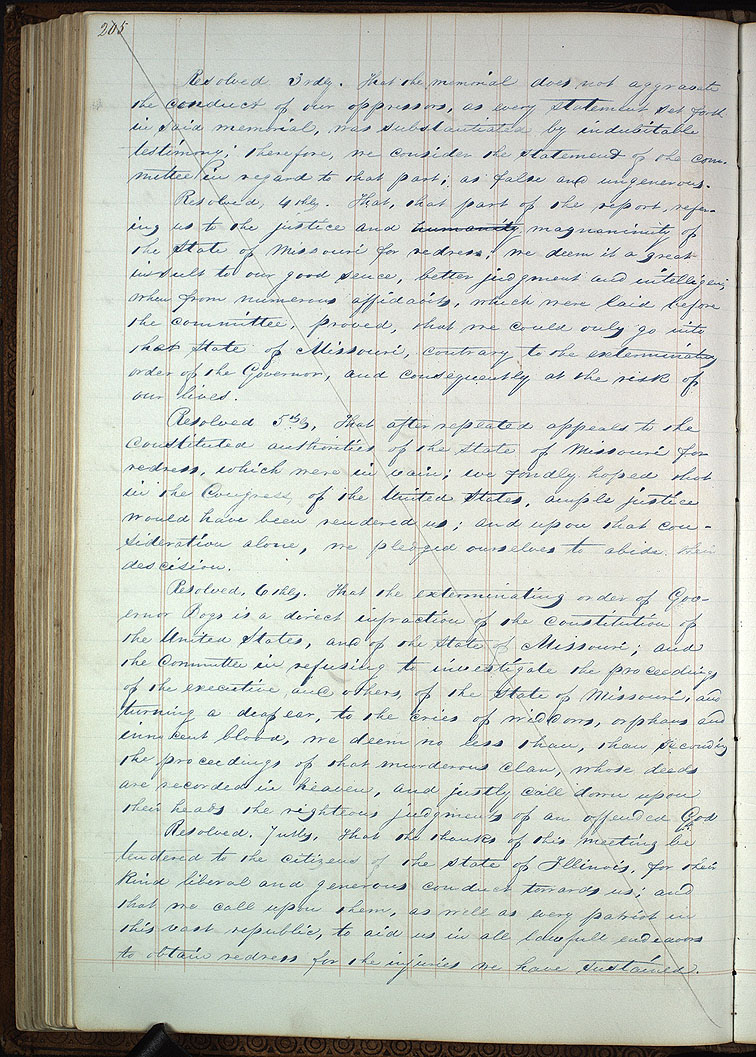 205
Resolved 3rdly. That the memorial does not aggravate
the conduct of our oppressors, as every statement set forth
in said memorial, was substantiated by indubitable
testimony; therefore, we consider the statement of the com-
mittee in regard to that part; as false and ungenerous.
Resolved, 4thly. That, that part of the report, refer-
ing us to the justice and humanity magnanimity of
the State of Missouri for redress; we deem it a great
insult to our good sence, better judgment and intelligence,
when from numerous affidavits, which were laid before
the committee, proved, that we could only go into
that State of Missouri, contrary to the exterminating
order of the Governor, and consequently at the risk of
our lives.
Resolved 5thly, That after repeated appeals to the
constituted authorities of the State of Missouri for
redress, which were in vain; we fondly hoped that
in the Congress, of the United States, ample justice
would have been rendered us; and upon that con-
sideration alone, we pledged ourselves to abide their
descision.
Resolved, 6thly. That the exterminating order of Gov-
ernor Bogs is a direct infraction of the constitution of
the United States, and of the State of Missouri; and
the Committee in refusing to investigate the proceedings
of the executive and others, of the State of Missouri, and
turning a deaf ear, to the cries of widdows, orphans and
innocent blood, we deem no less than, than seconding
the proceedings of that murderous clan, whose deeds
are recorded in heaven, and justly call down upon
their heads the righteous judgments of an offended God
Resolved. 7nthly, That the thanks of this meeting be
tendered to the citizens of the State of Illinois, for their
kind liberal and generous conduct towards us; and
that we call upon them, as well as every patriot in
this vast republic, to aid us in all lawfull endeavors
to obtain redress for the injuries we have sustained.